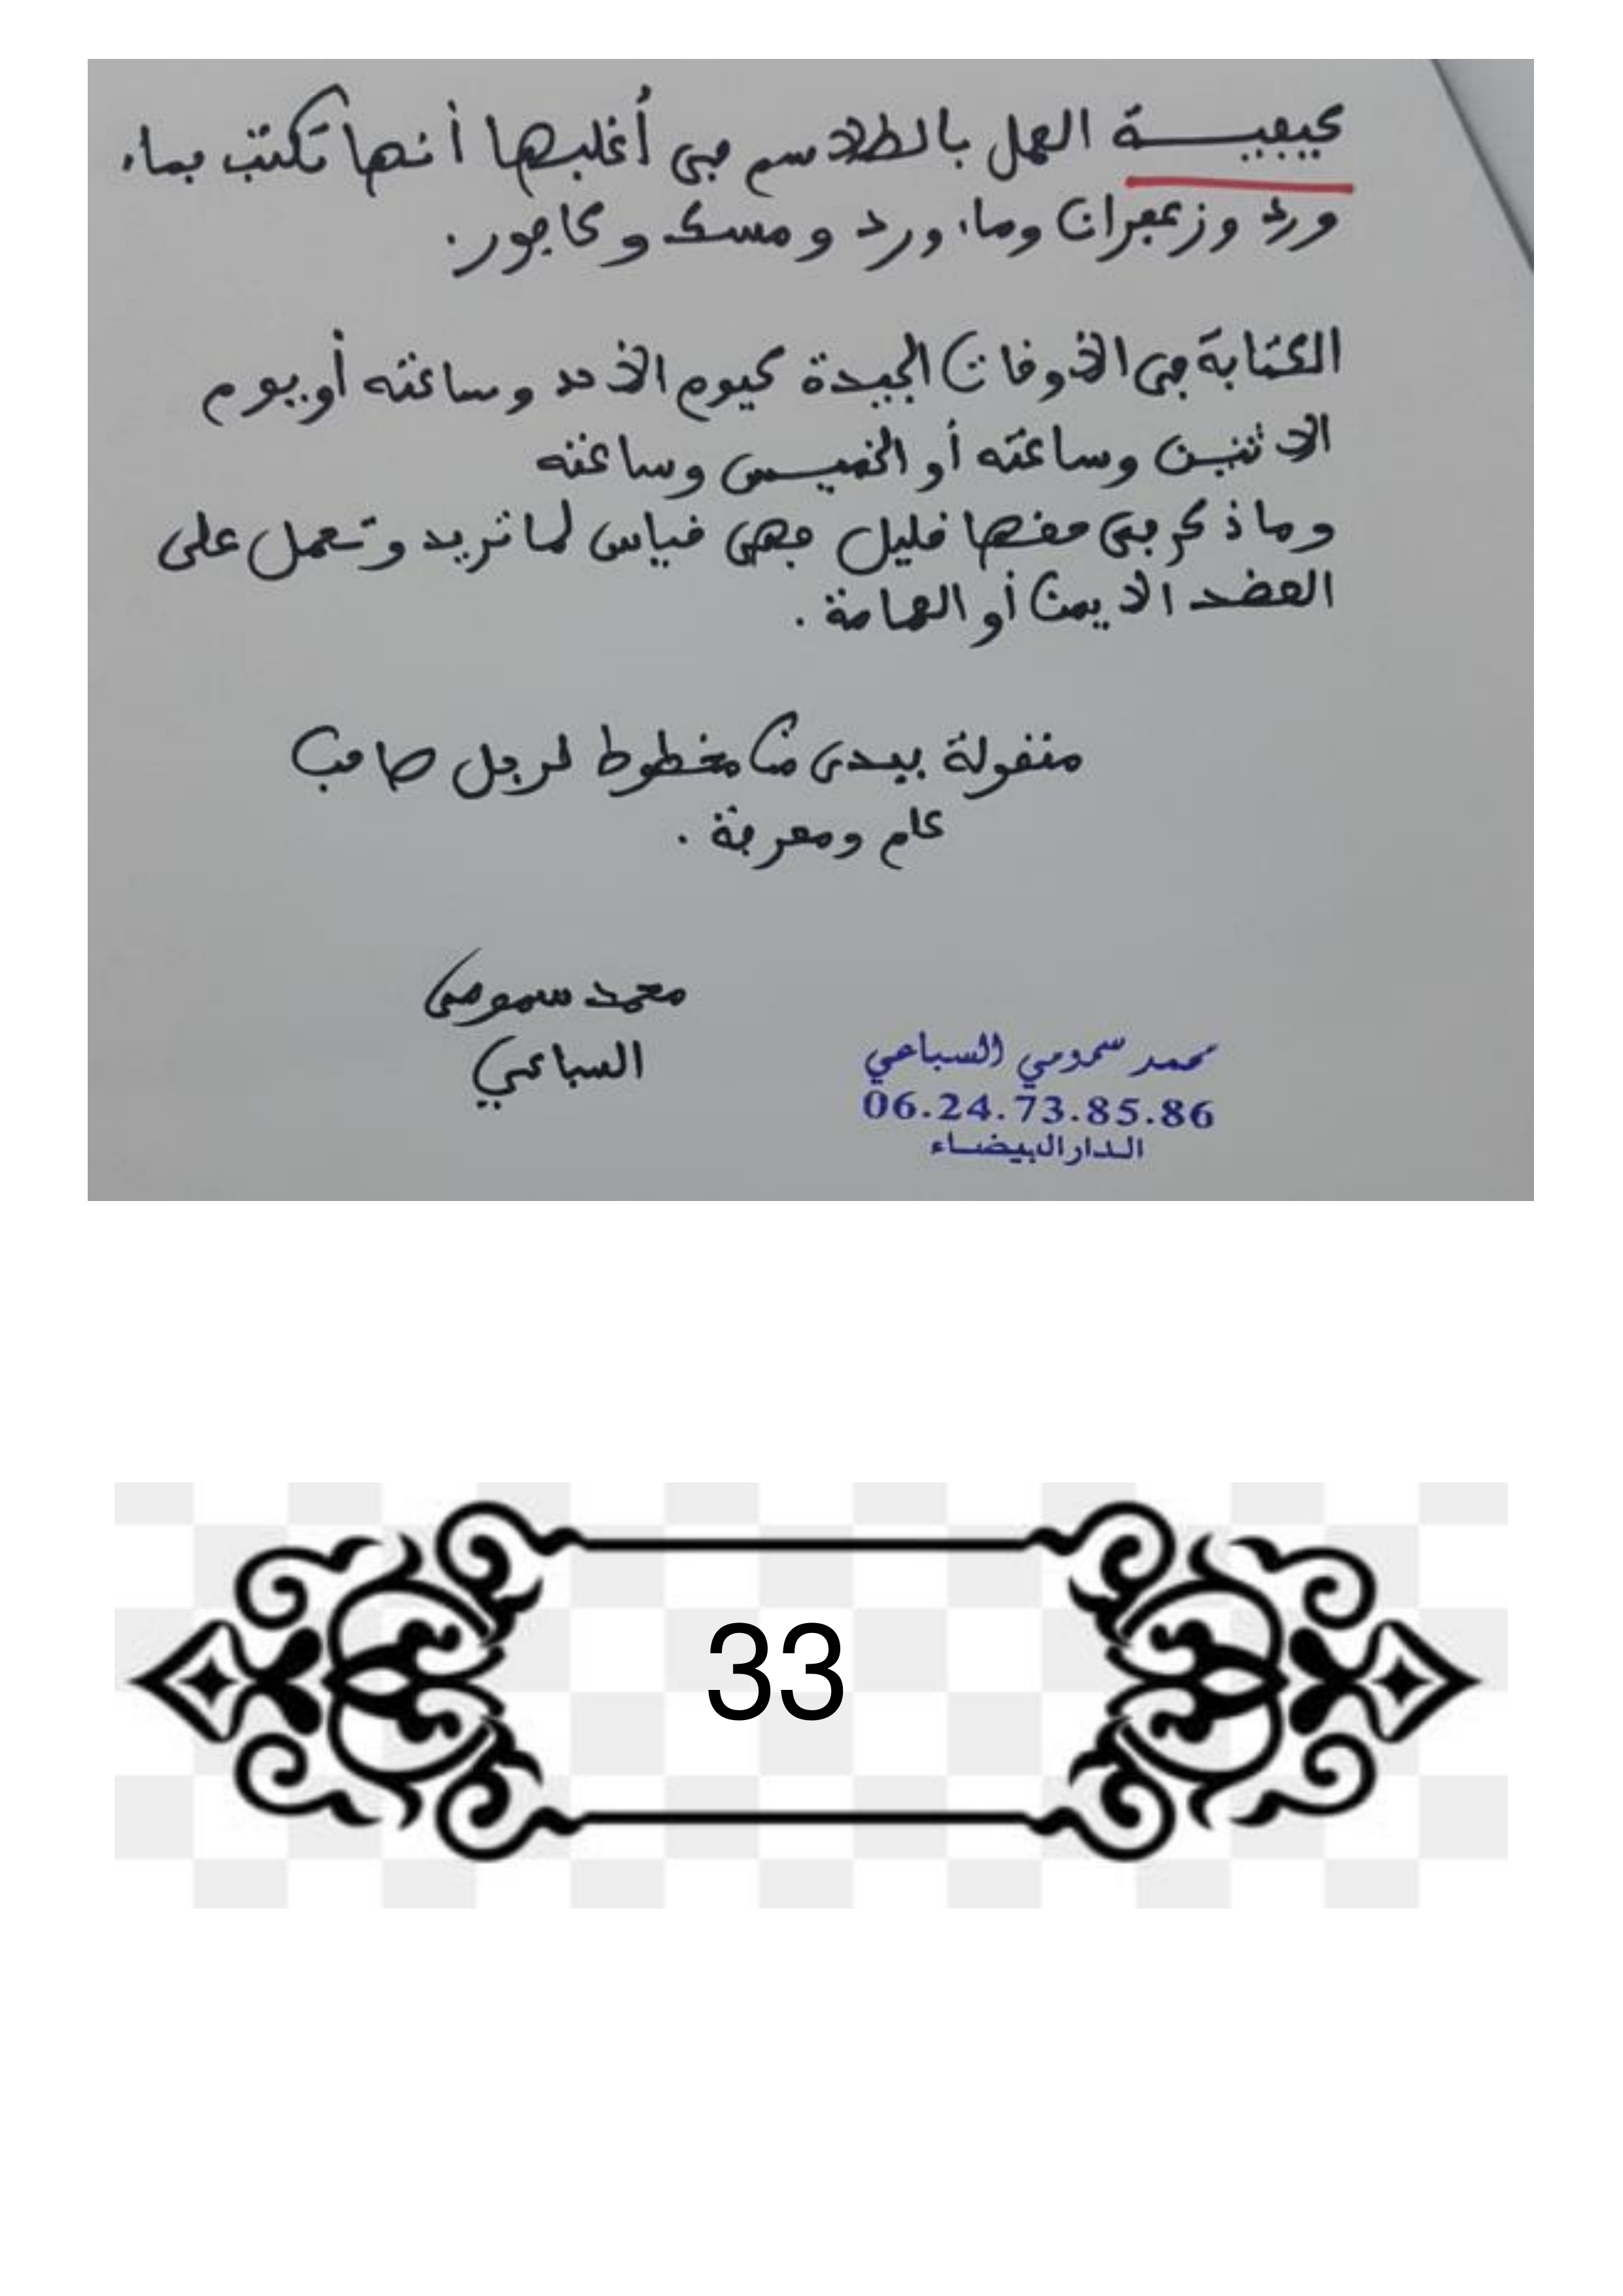 كيفية العمل بالطلاسم في أغلبها أنها تكتب بماء
ورد وزعفران وماء ورد ومسك وكافور.
الكتابة في الأوقات الجيدة كيوم الأحد وساعته أو يوم
الاثنين وساعته أو الخميس وساعته
وما ذكر في حقها قليل فهي قياس لما تريد وتعمل على
العضد الايمن أو العمامة.
منقولة بيدي من مخطوط لرجل صاحب
علم ومعرفة.
محمد سمومي
السباعي
محمد سمومي السباعي
06.24.73.85.86
الدار البيضاء
33